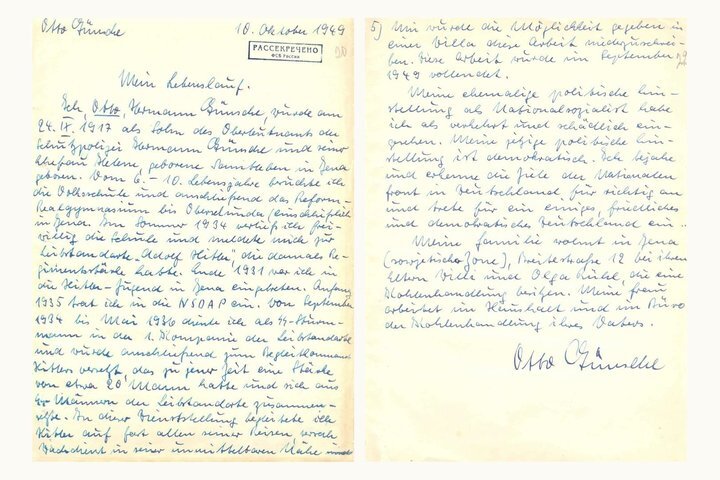 Otto Günsche 10. Oktober 1949
РАССЕКРЕЧЕНО
ФСБ России
Mein Lebenslauf.
Ich, Otto, Hermann Günsche, wurde am
24. IX. 1917 als Sohn des Oberleutnants der
Schutzpolizei Hermann Günsche und seiner
Ehefrau Helene, geborene in Jena
geboren. Vom 6. - 10. Lebensjahre besuchte ich
die Volksschule und anschließend das Reform-
Realgymnasium bis Obersekunda (einschließlich)
in Jena. Im Sommer 1934 verließ ich frei-
willig die Schule und meldete mich zur
Leibstandarte-Adolf Hitler, die damals Re-
gimentsstärke hatte. Ende 1931 war ich in
die Hitler-Jugend in Jena eingetreten. Anfang
1935 trat ich in die NSDAP ein. Von September
1934 bis Mai 1936 diente ich als SS-Sturm-
mann in der 1. Kompanie der Leibstandarte
und wurde anschließend zum Begleitkommando
Hitlers versetzt, das zu jener Zeit eine Stärke
von etwa 20 Mann hatte und sich aus
Männern der Leibstandarte zusammen-
setzte. In dieser Dienststellung begleitete ich
Hitler auf fast allen seiner Reisen, versah
Wachdienst in seiner unmittelbaren Nähe und
5) Mir wurde die Möglichkeit gegeben in
einer Villa diese Arbeit niederzuschrei-
ben. Diese Arbeit wurde im September
1949 vollendet.
Meine ehemalige politische Ein-
stellung als Nationalsozialist habe
ich als verkehrt und schädlich ein-
gesehen. Meine jetzige politische Ein-
stellung ist demokratisch. Ich bejahe
und erkenne die Ziele der Nationalen
Front in Deutschland für richtig an
und trete für ein einiges, friedliches
und demokratisches Deutschland ein.
Meine Familie wohnt in Jena
(sowjetische Zone), Breitestraße 12 bei ihren
Eltern Willi und Olga Kühl, die eine
Kohlenhandlung besitzen. Meine Frau
arbeitet im Haushalt und im Büro
der Kohlenhandlung ihres Vaters.
Otto Günsche